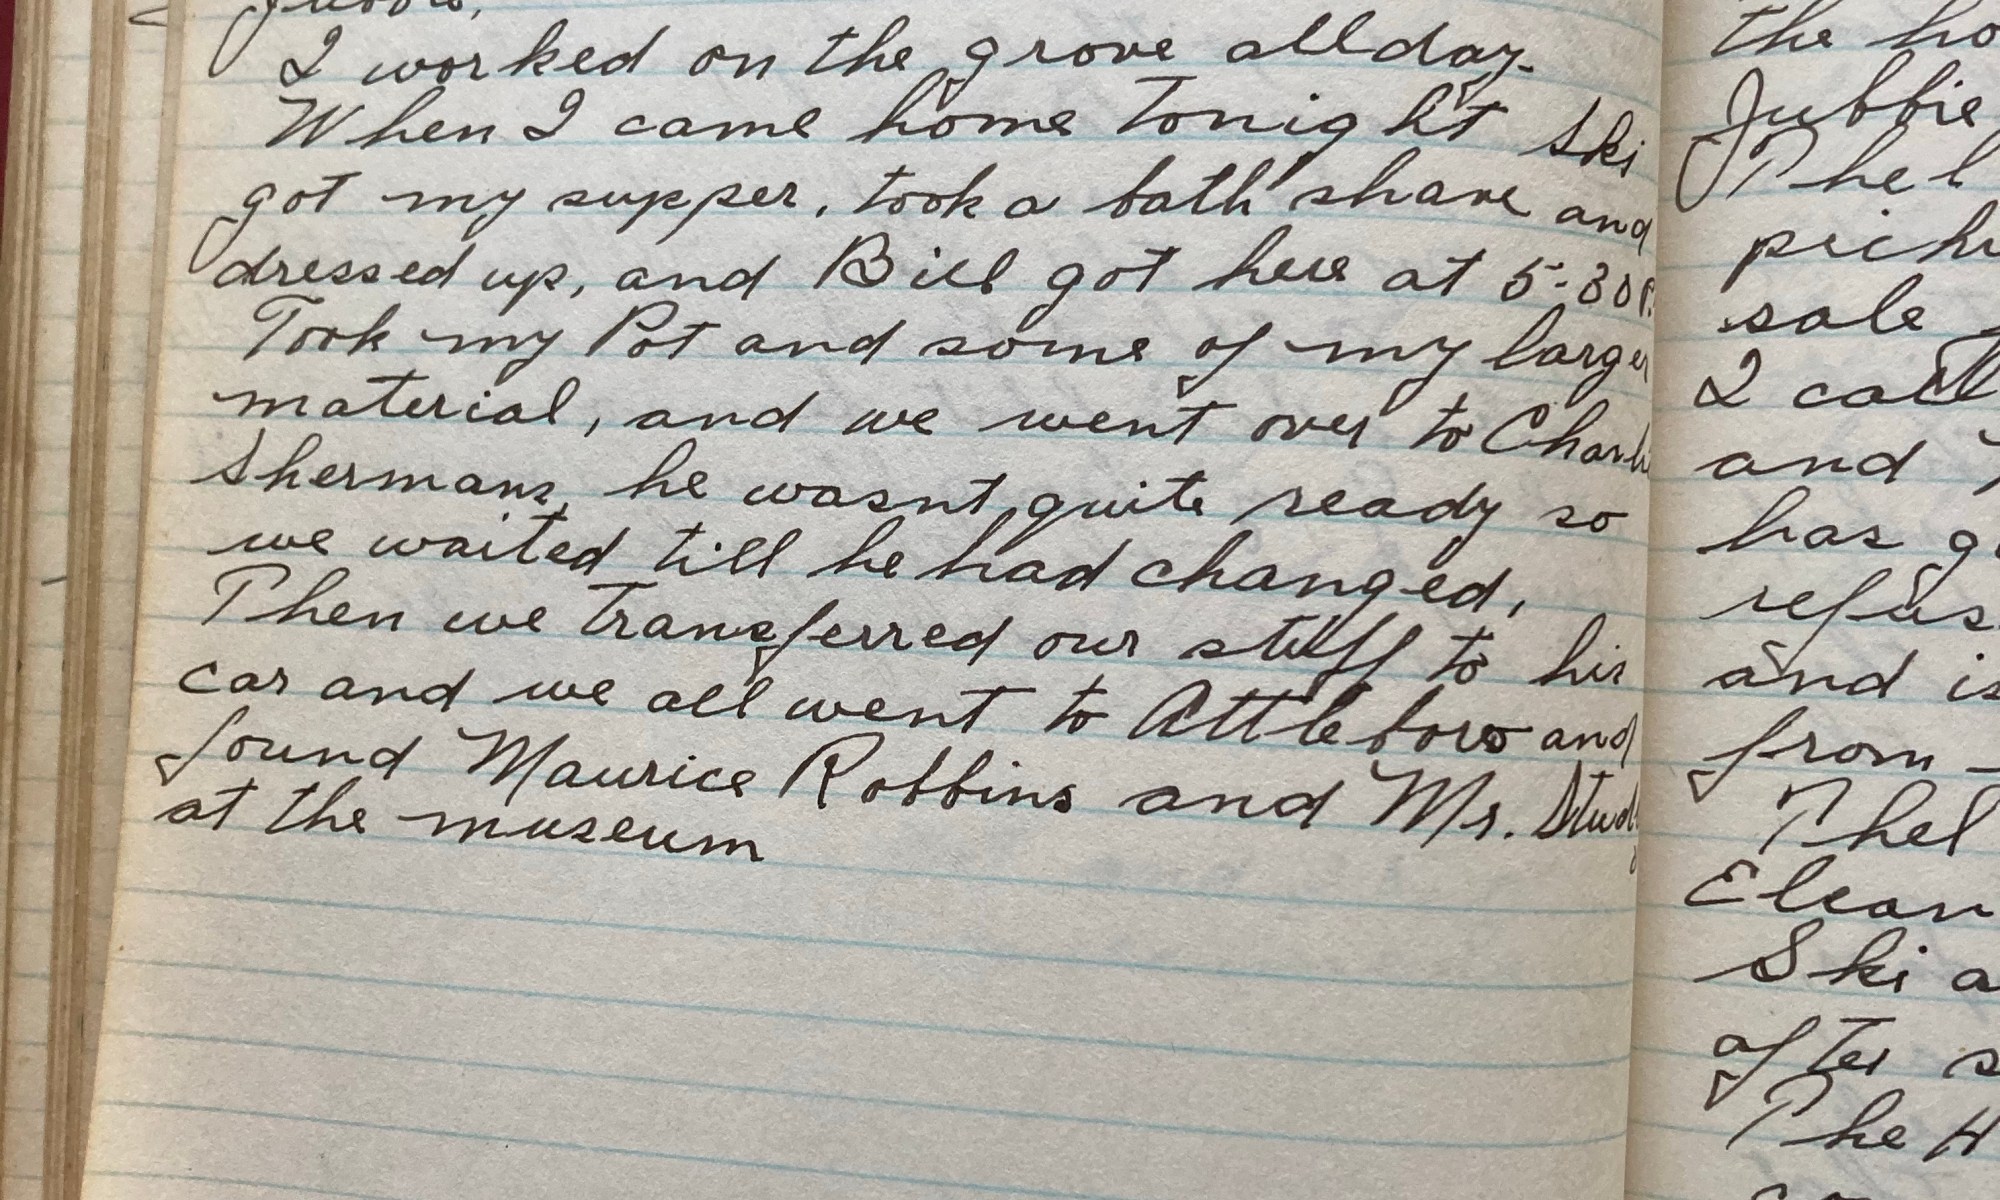 I worked on the grove all day.
When I came home tonight Ski
got my supper, took a bath shave and
dressed up, and Bill got here at 5-30P.
Took my Pot and some of my larger
material, and we went over to
Shermans, he wasnt quite ready so
we waited till he had changed,
Then we transferred our stuff to his
car and we all went to Attleboro and
found Maurice Robbins and Mr.
at the museum
the
Jubbie
sale
I call
and
has
and is
from
Ski a
after s
The H